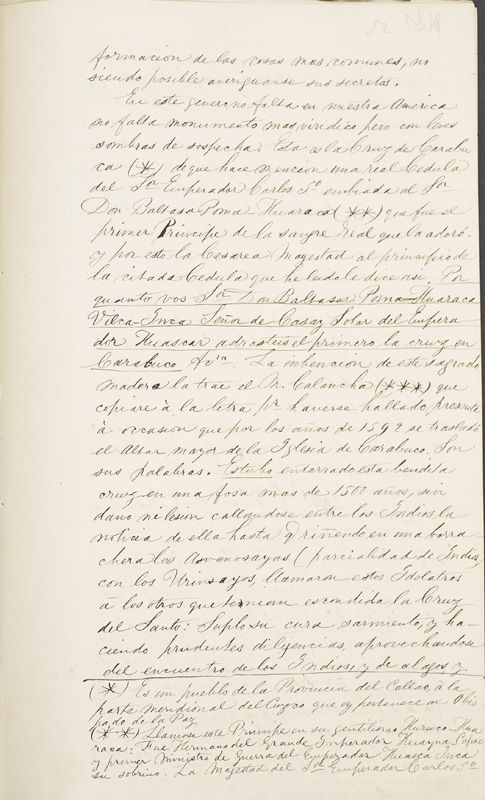 formacion de las cosas mas comunes, no
siendo posible averiguarse sus secretos.
En este genero no falta en nuestra America
no falta monumento mas viridico pero con leves
sombras de sospecha. Esta es la Cruz de Carabu
ca (*) de que hace mencion una real Cedula
del Sor Emperador Carlos 5o embiada al Sor
Don Baltasa Poma Huaraca (**) que fue el
primer Principe de la sangre real que la adoró
y por esto la Cesarea Magestad al principio de
la citada Cedula que he leido le dice asi, Por
quanto vos Sor Don Baltasar Poma Huaraca
Vilca-Inca Señor de Casa y Solar del Empera
dor Huascar adrasteis el primero la cruz en
Carabuco &ra. La inbencion de este sagrado
madero la trae el M. Calancha (***) que
copiare à la letra pr haverse hallado presente
à occasion que por los años de 1592 se trasladó
el Altar mayor de la Iglesia de Carabuco. Son
sus palabras. Estubo enterrado esta bendita
cruz en una fosa mas de 1500 años, sin
dano ni lesion callandose entre los Indios la
noticia de ella hasta q riñendo en una borra
chera los Avanosayas (parcialidad de Indios
con los Urinsayos, llamaron estos Idolatros
à los otros que tenian escondida la Cruz
del Santo: Suplo su cura sarmiento, y ha-
ciendo prudentes dilijencias, aprovechandose
del encuentro de los Indios, y de alagos y
(*) Es un pueblo de la Provincia del Callao, à la
parte meridional del Cuzco que oy pertenece al Obis
pado de la Paz
(**) Llamose este Principe en su gentilismo Huruco Hua
raca: Fue Hermano del Grande Imperador Huayna Capac
y primer Ministro de Guerra del Emperador Huasca Inca
su sobrino. La Magestad del Sor Emperador Carlos 5o